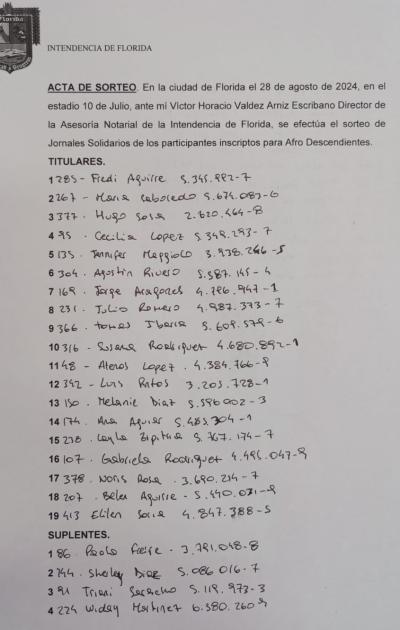 Florida
INTENDENCIA DE FLORIDA
ACTA DE SORTEO. En la ciudad de Florida el 28 de agosto de 2024, en el
estadio 10 de Julio, ante mi Victor Horacio Valdez Arniz Escribano Director de
la Asesoría Notarial de la Intendencia de Florida, se efectúa el sorteo de
Jornales Solidarios de los participantes inscriptos para Afro Descendientes.
TITULARES.
1 285 - Fiedi Aguirre 5.345.992-7
2 267 - Maria 5.674.083-6
3 377 - Hugo Sosa 2.620.464-8
4 95 - Cecilia Lopez 5.349.293-7
5 135 - Jennifer Maggiolo 3.938.266-5
6 304 - Agostin Rivero 5.587.145-4
7 169 - Jorge Aragones 4.796.947-1
8 231 - Julio Romero 4.987.373-7
9 366 - Tomas Ibarra 5.609.579-6
10 316 - Susana Rodriguez 4.680.892-1
11 48 - Lopez 4.384.766-9
12 342 - Luis 3.203.728-1
13 150 - Melanie Diaz 5.596002-3
14 174 - Ana 5.485.304-1
15 238 - Leyla 5.767.174-7
16 107 - Gabriela Rodriguez 4.495.047-9
17 378 - Noris Rosa - 3.690.214-7
18 207 - Belen Aguirre - 5.440.031-9
19 413 Soria 4.847.388-5
SUPLENTES.
1 86 - Paola - 3.791.048-8
2 244 - Shirley Diaz 5.086016-7
3 91 - 5.119.973-3
4 224 Martinez 6.580.260